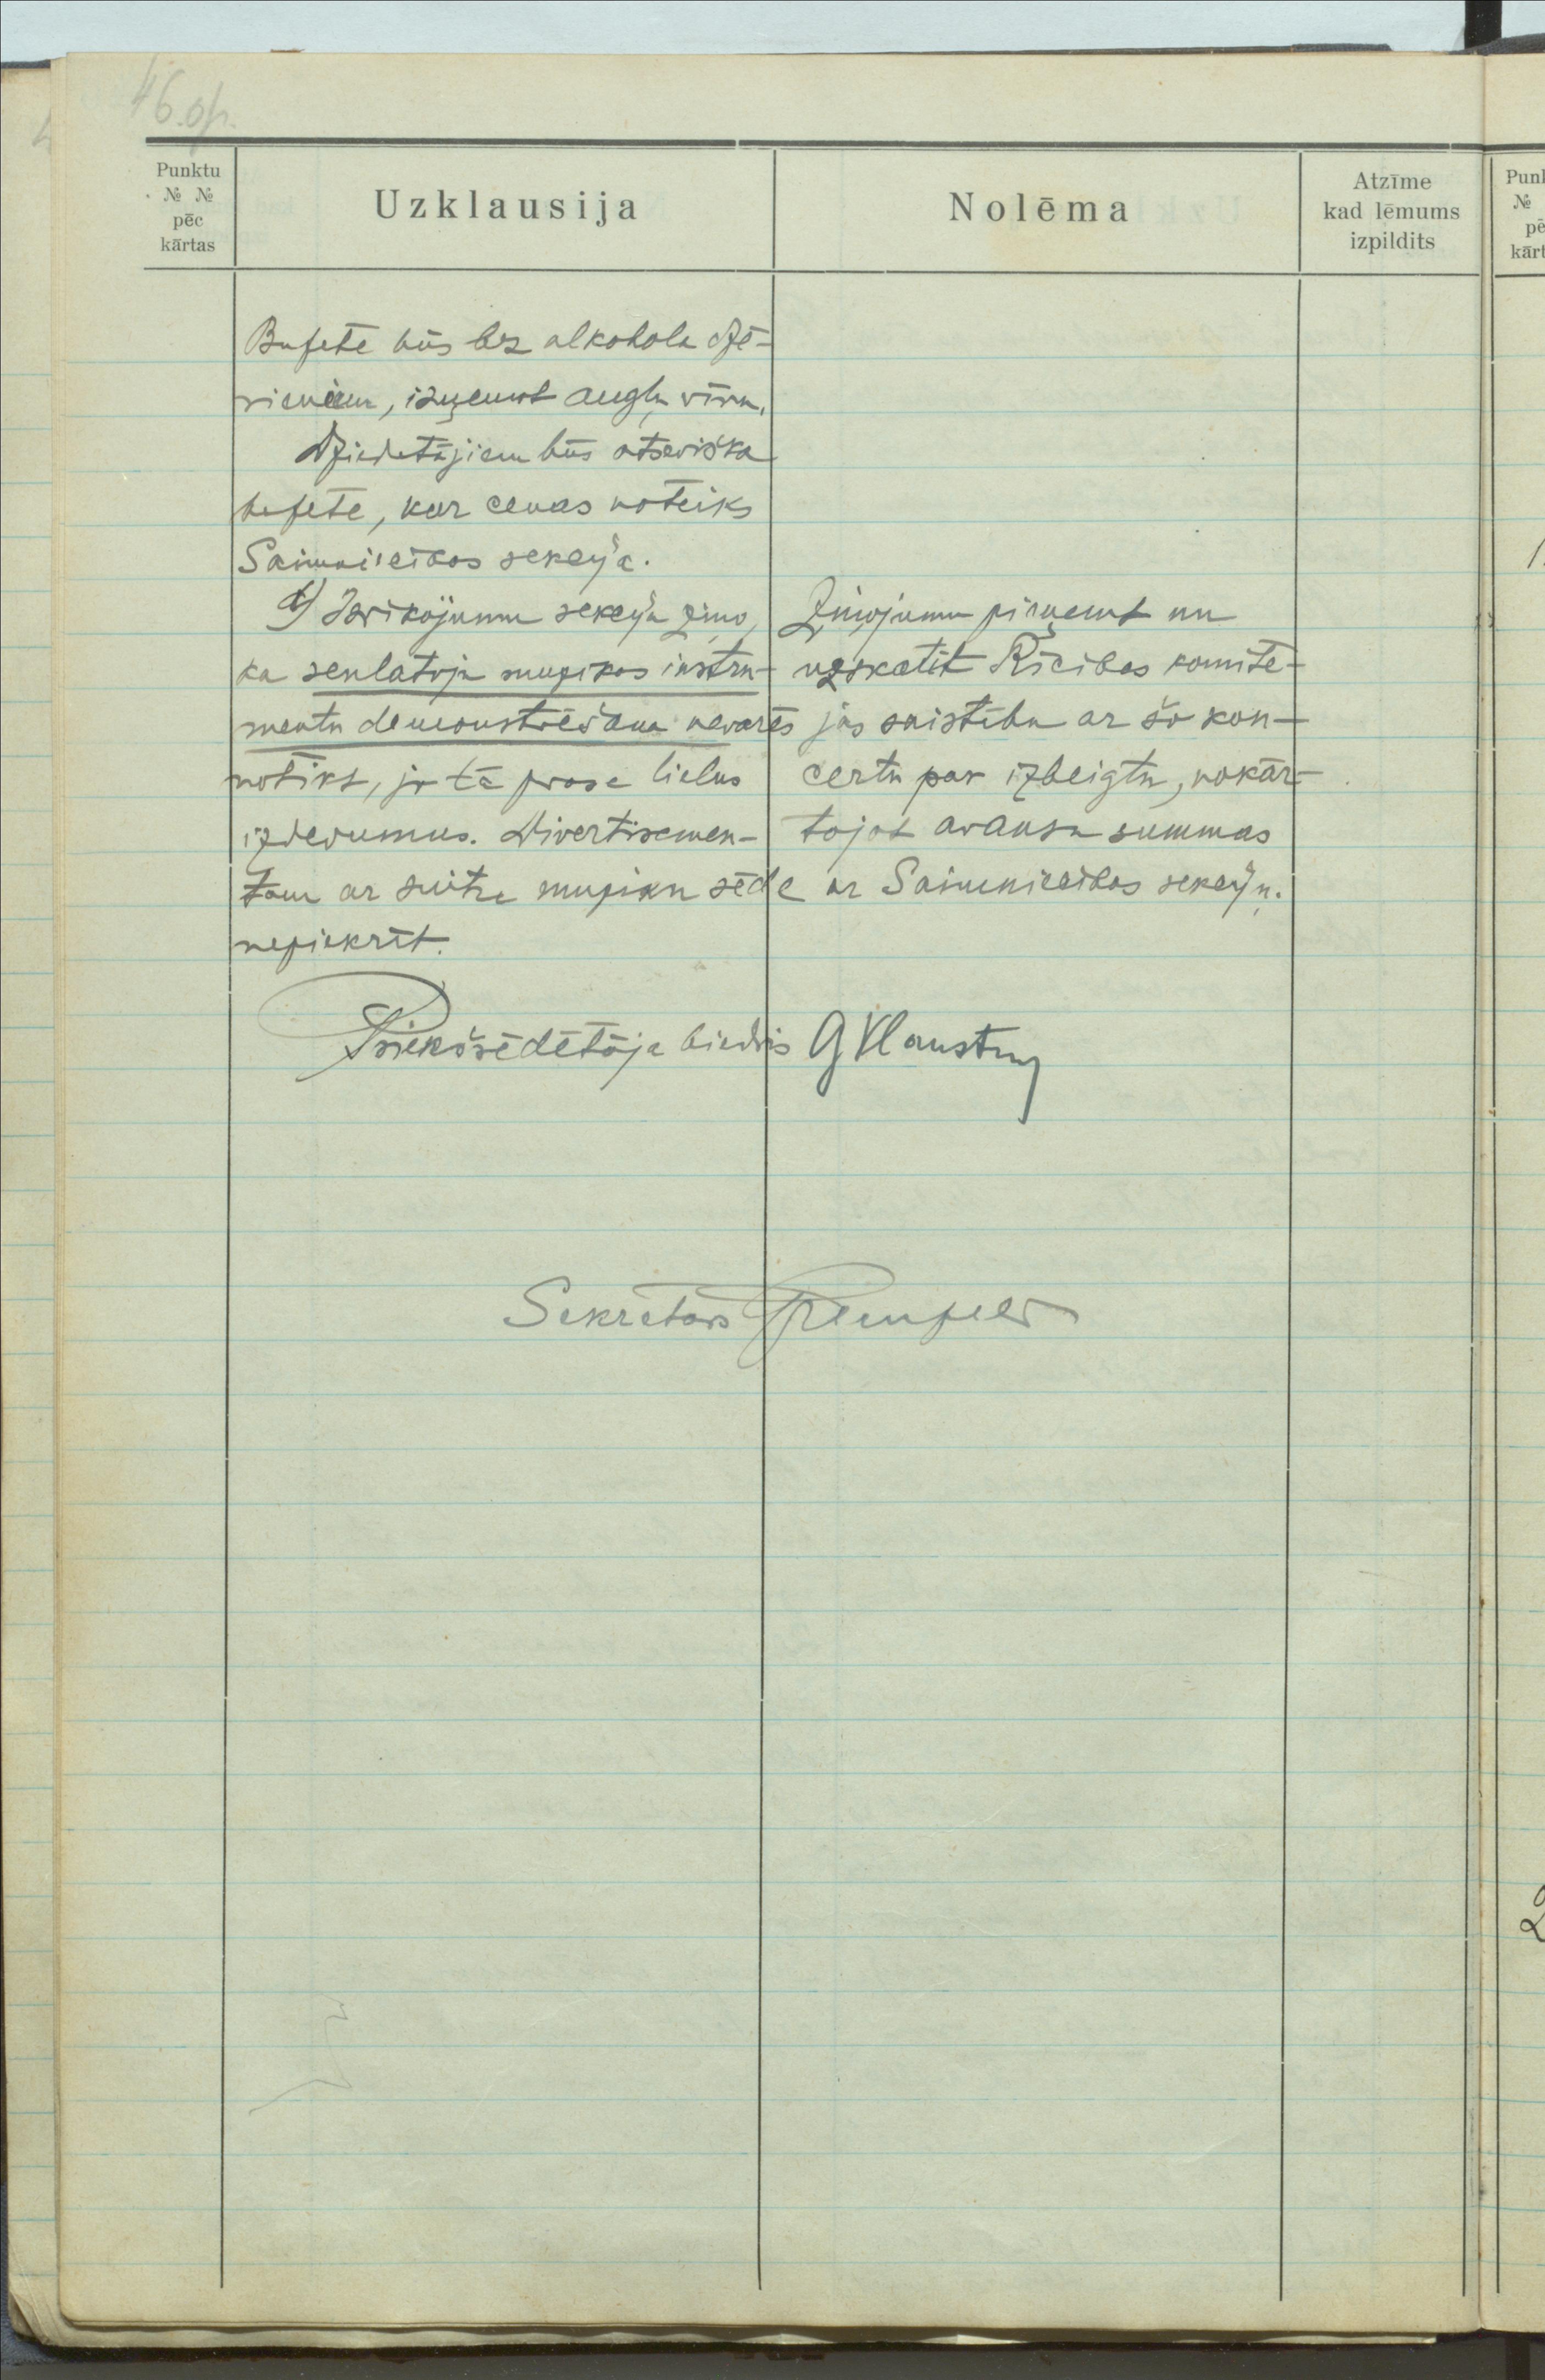 46.op.
Punktu
№ №
pēc
kārtas
Uzklausija
Nolēma
Atzīme
kad lēmums
izpildits
Bufete būs bez alkohola dzē-
rieniem, izņemot augļu vīnu.
Dziedatājiem būs atseviška
bufete, kur cenas noteiks
Saimniecības sekcija.
d) Izrikojumu sekcija ziņo,
ka senlatvju muzikas instru-
mentu demonstrēšana nevarēs
notikt, jo tā prasa lielus
izdevumus. Divertisemen-
tam ar muziku sēde
nepiekrīt.
Ziņojumu pieņemt un
uzskatīt Rīcības komite-
jas saistību ar šo kon-
certu par izbeigtu, nokār-
tojot avansa summas
ar Saimniecības sekciju.
Priekšsēdētāja biedris G Klaustiņ
Sekretars
Punk
№
pē
kārt
1.
2